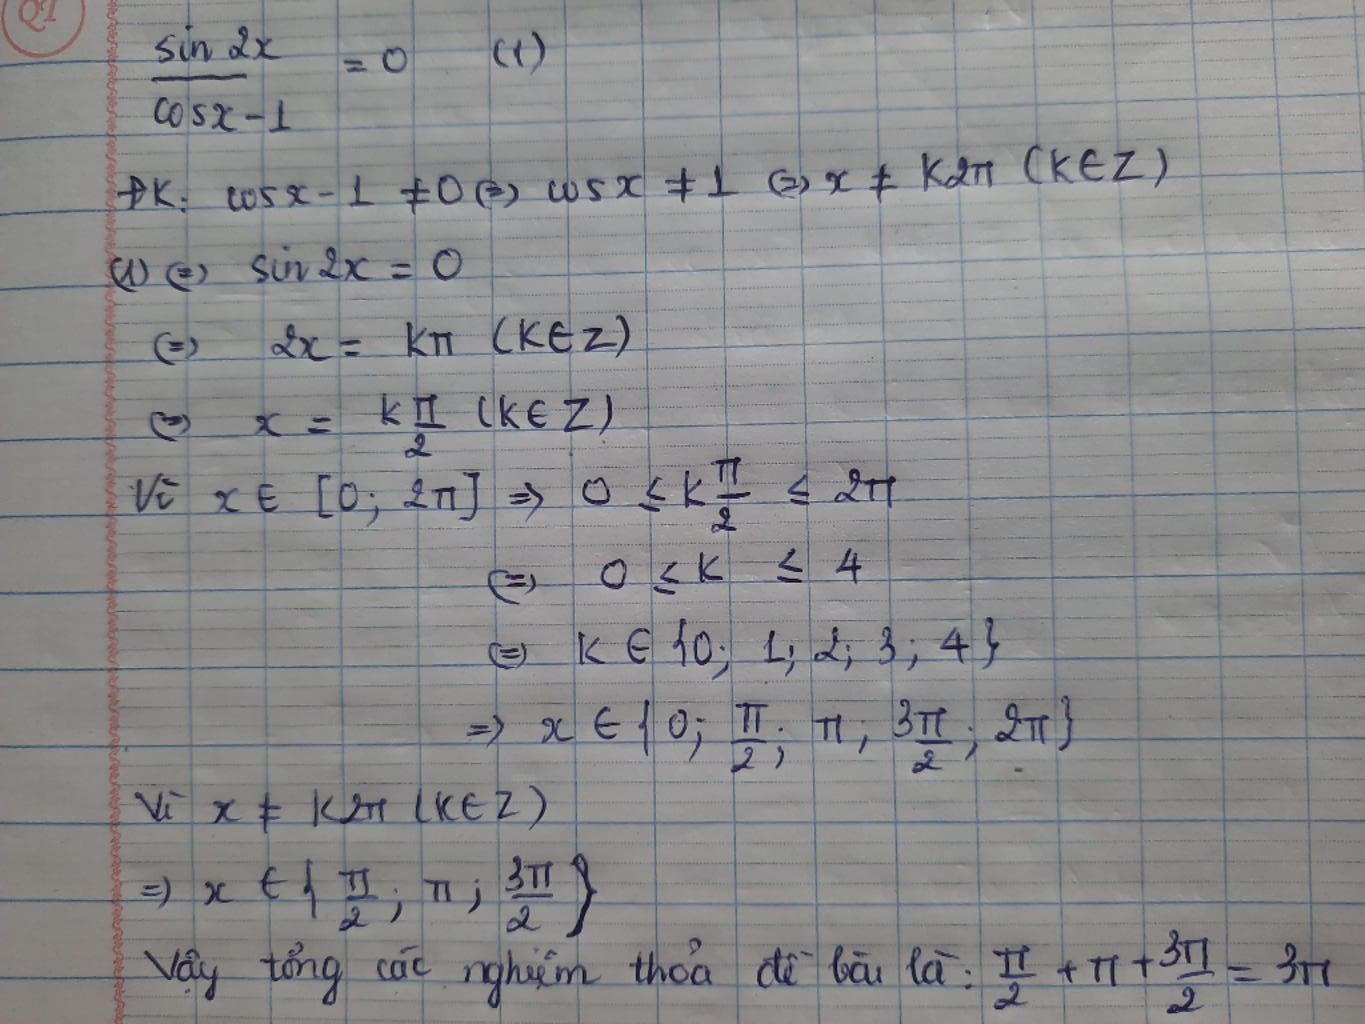 Q1
sin 2x / cosx - 1 = 0 (1)
ĐK: cosx - 1 ≠ 0 (=) cosx ≠ 1 (=) x ≠ K2π (K∈Z)
(1) (=) sin 2x = 0
(=) 2x = Kπ (K∈Z)
(=) x = Kπ/2 (K∈Z)
Vì x ∈ [0; 2π] => 0 ≤ Kπ/2 ≤ 2π
(=) 0 ≤ K ≤ 4
(=) K ∈ {0; 1; 2; 3; 4}
=> x ∈ {0; π/2; π; 3π/2; 2π}
Vì x ≠ K2π (K∈Z)
=> x ∈ {π/2; π; 3π/2}
Vậy tổng các nghiệm thỏa đề bài là: π/2 + π + 3π/2 = 3π